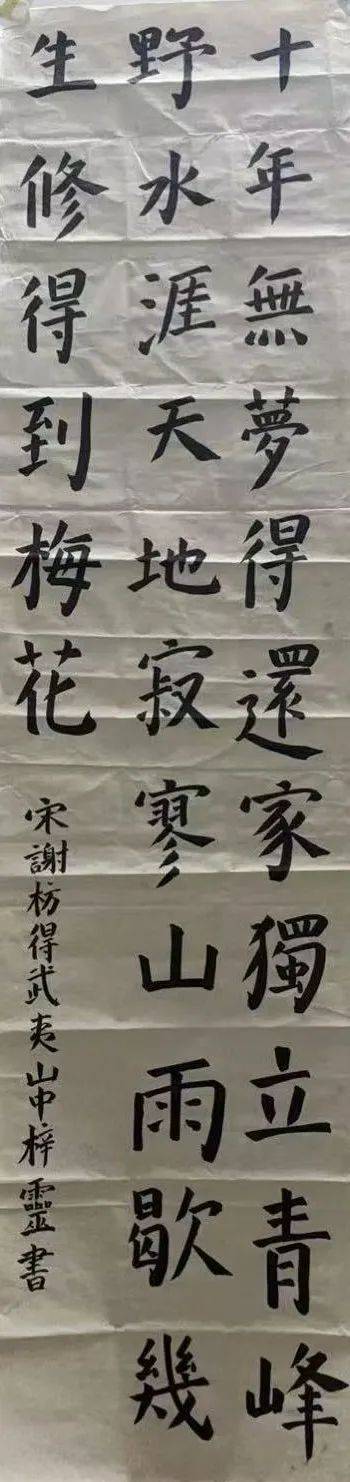 十年無夢得還家獨立青峰
野水涯天地寂寥山雨歇幾
生修得到梅花
宋謝枋得武夷山中梓靈書